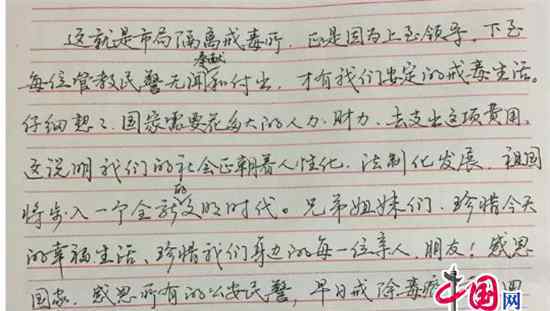 这就是市局隔离戒毒所，正是因为上至领导，下至
奉献
每位管教民警无闻和付出，才有我们安定的戒毒生活。
仔细想想，国家需要花多大的人力、财力，去支出这项费用。
这说明我们的社会正朝着人性化，法制化发展，祖国
的
将步入一个全新文明时代。兄弟姐妹们，珍惜今天
的幸福生活、珍惜我们身边的每一位亲人、朋友！感恩
国家，感恩所有的公安民警，早日戒除毒瘾
中国网